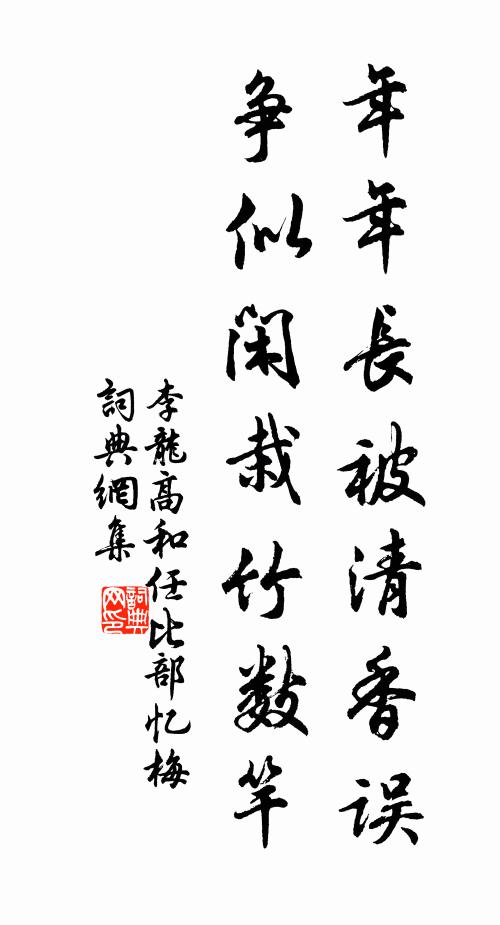 年年長被清香误
争似闲栽竹数竿
李龍高和任比部忆梅
詞典網集
詞典网印